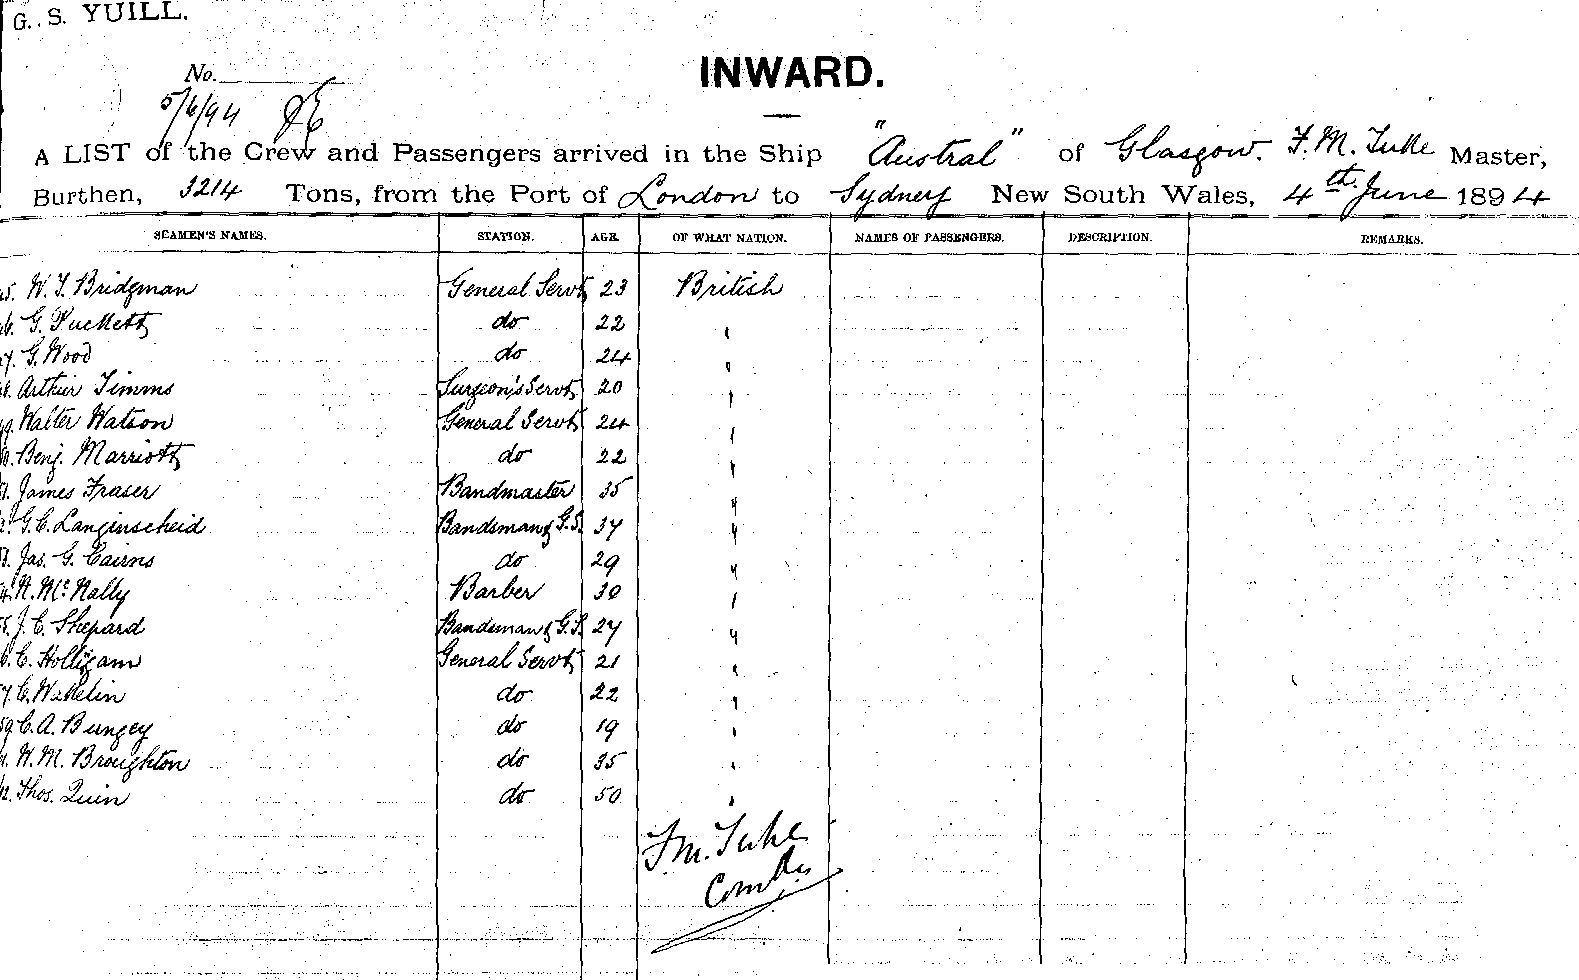 G. S. YUILL.
INWARD.
No.
5/6/94
A LIST of the Crew and Passengers arrived in the Ship "Austral" of Glasgow. F. M. Tuke Master,
Burthen, 3214 Tons, from the Port of London to Sydney New South Wales, 4th June 1894
SEAMEN'S NAMES. STATION. AGE. OF WHAT NATION. NAMES OF PASSENGERS. DESCRIPTION. REMARKS.
W. T. Bridgman General Servt 23 British
G. Puckett do 22 "
G. Wood do 24 "
Arthur Timms Surgeon's Servt 20 "
Walter Watson General Servt 24 "
Benj. Marriott do 22 "
James Fraser Bandmaster 35 "
G. C. Langinscheid Bandsman & G.S. 37 "
Jas. G. Cairns do 29 "
McNally Barber 30 "
J. C. Shepard Bandsman & G.S. 27 "
C. Holligam General Servt 21 "
C. Wakelin do 22 "
C. A. Bungey do 19 "
M. Broughton do 35 "
Thos. Quin do 50 "
F. M. Tuke
Comdr